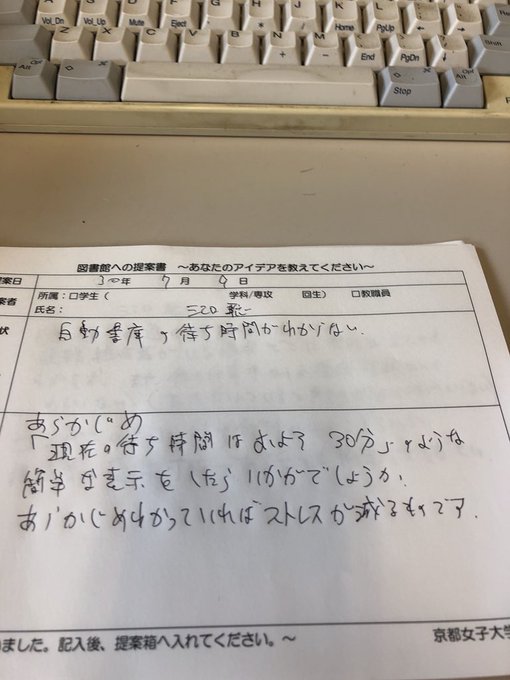 Vol_Dn Vol_Up Mute Eject Home PgUp
End PgDn Shift
Alt Opt Stop Alt Opt
図書館への提案書 ～あなたのアイデアを教えてください～
提案日 30年 7月 9日
案者 所属：□学生（ 学科/専攻 回生） □教職員
氏名：
状 自動書庫の待ち時間がわからない。
あらかじめ
「現在の待ち時間はおよそ30分」のような
簡単な表示をしたらいかがでしょうか。
あらかじめわかっていればストレスが減るものです。
ました。記入後、提案箱へ入れてください。～ 京都女子大学